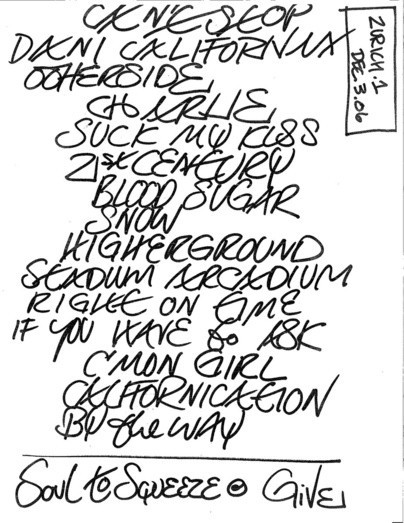 CAN'T STOP
DANI CALIFORNIA
OTHERSIDE
CHARLIE
SUCK MY KISS
21st CENTURY
BLOOD SUGAR
SNOW
HIGHERGROUND
STADIUM ARCADIUM
RIGHT ON TIME
IF YOU HAVE to ASK
C'MON GIRL
CALIFORNICATION
BY the WAY
SOUL to SQUEEZE • GIVE
ZURICH.1
DEC.3.06